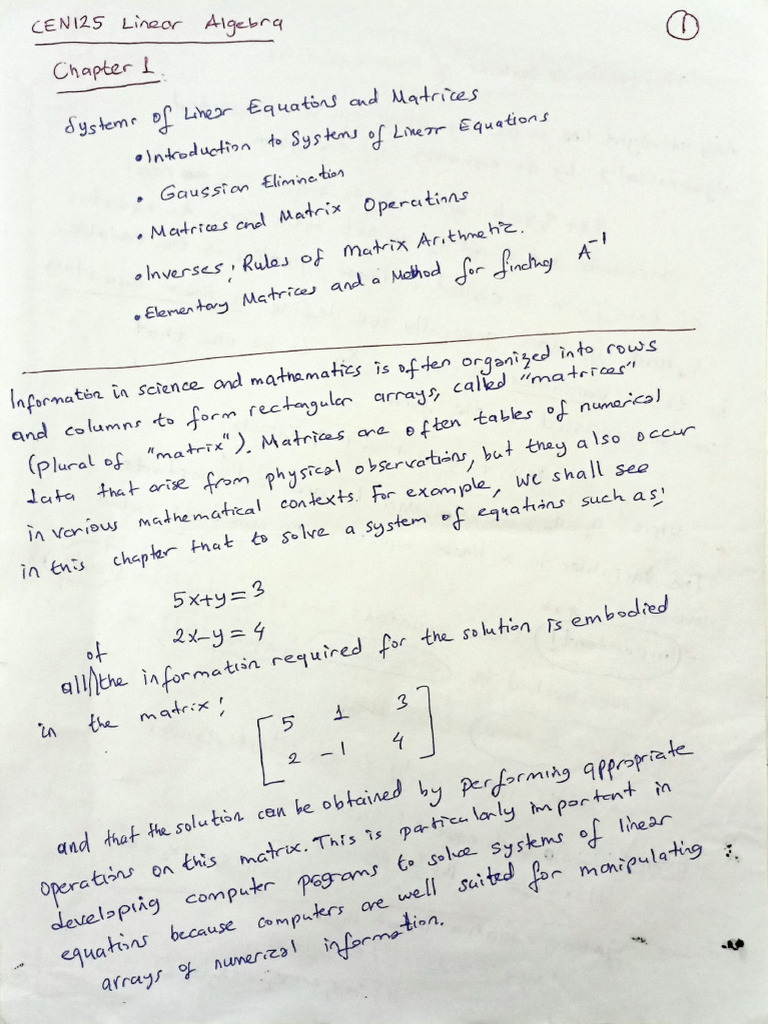 CEN125 Linear Algebra
1
Chapter 1.
Systems of Linear Equations and Matrices
• Introduction to Systems of Linear Equations
• Gaussian Elimination
• Matrices and Matrix Operations
• Inverses; Rules of Matrix Arithmetic.
• Elementary Matrices and a Method for finding A⁻¹
Information in science and mathematics is often organized into rows
and columns to form rectangular arrays, called "matrices"
(plural of "matrix"). Matrices are often tables of numerical
data that arise from physical observations, but they also occur
in various mathematical contexts. For example, we shall see
in this chapter that to solve a system of equations such as:
5x+y=3
2x-y=4
all of the information required for the solution is embodied
in the matrix:
[5 1 3
2 -1 4]
and that the solution can be obtained by performing appropriate
operations on this matrix. This is particularly important in
developing computer pograms to solve systems of linear
equations because computers are well suited for manipulating
arrays of numerical information.